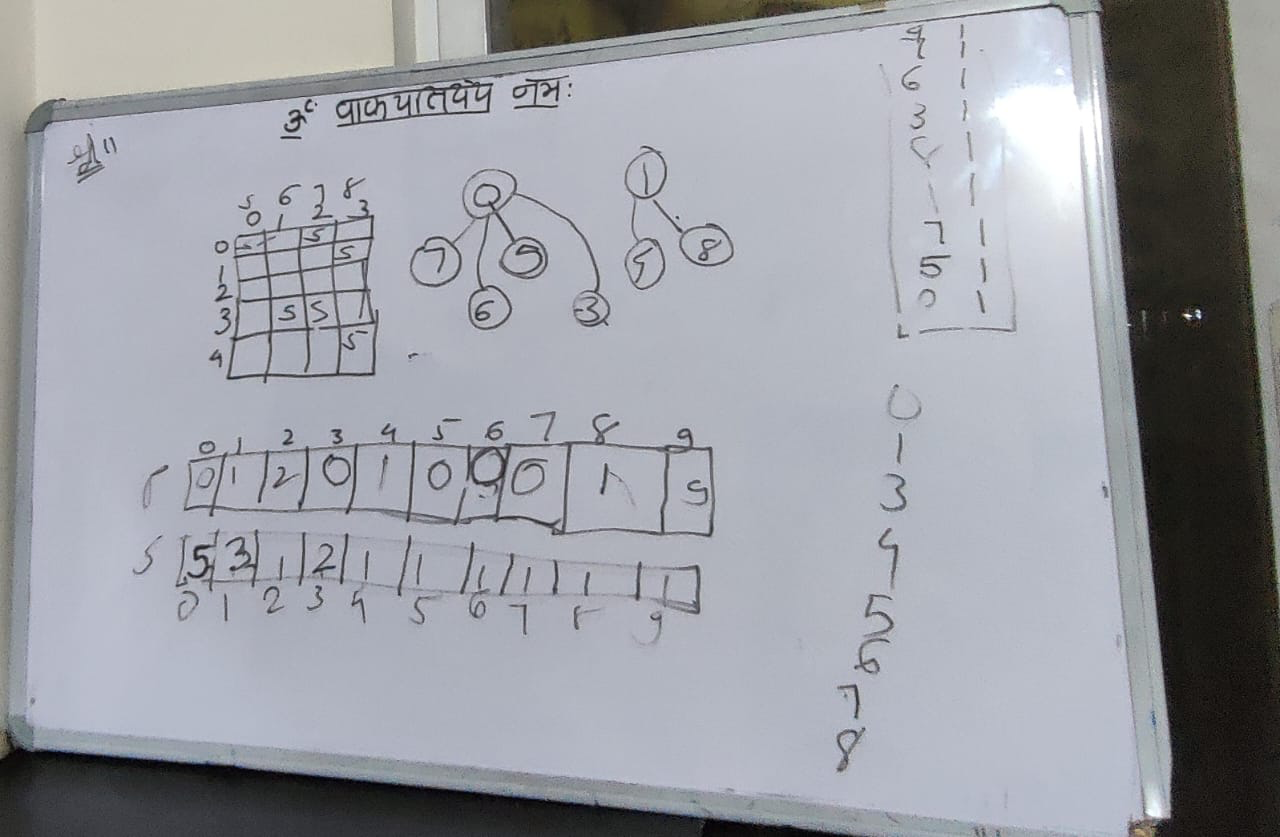 ॐ वाकपतियेय नमः
श्री॥
5 6 7 8
0 1 2 3
0 5
1 5
2
3 5 5
4 5
0 1
7 9 5 8
6 3
0 1 2 3 4 5 6 7 8 9
0 1 2 0 1 0 0 0 1 9
5 3 1 2 1 1 1 1 1 1
0 1 2 3 4 5 6 7 8 9
6 1
3 1
1
1
7 1
5 1
0 1
0
1
3
4
5
6
7
8